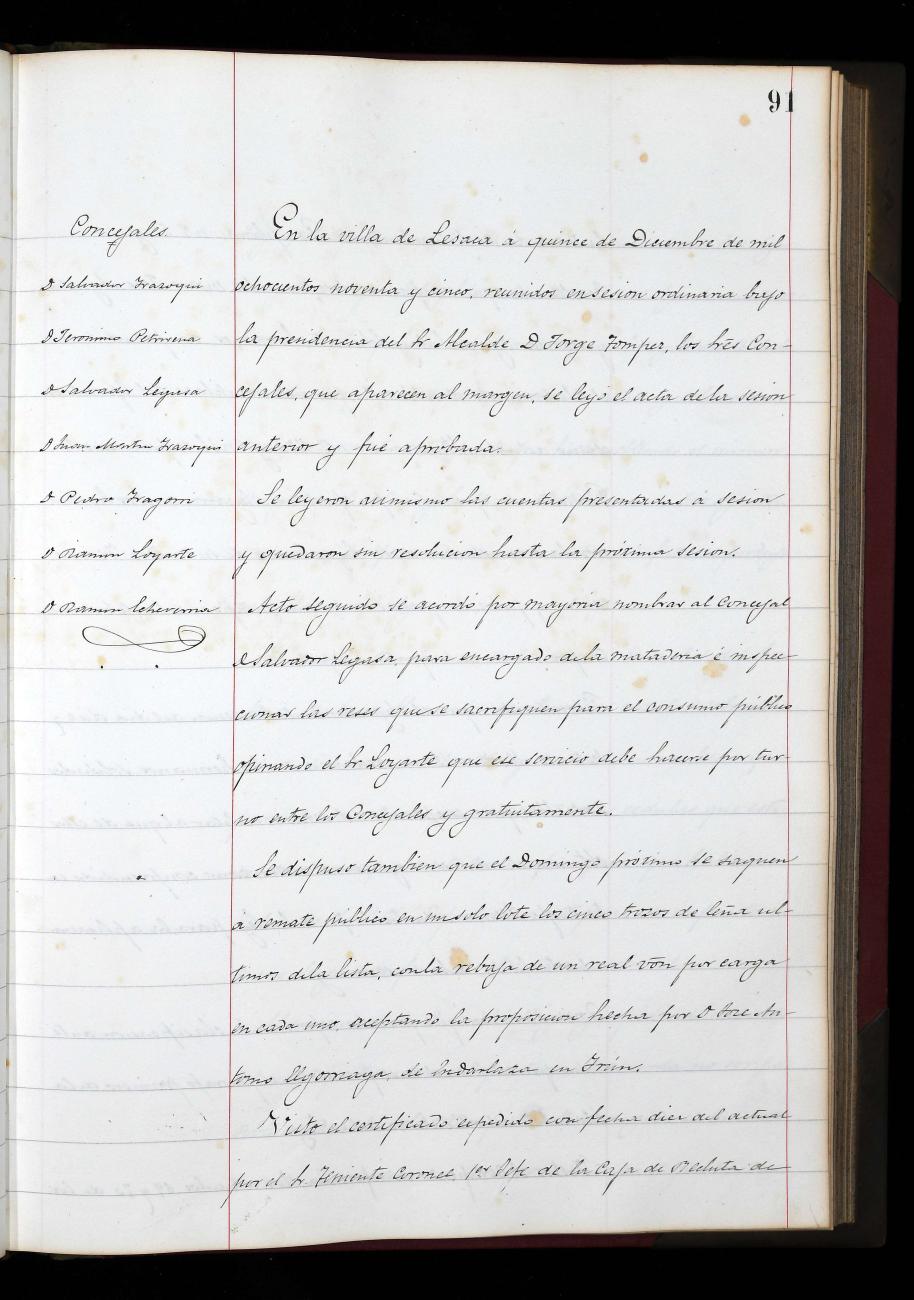 91
Concejales.
D Salvador Irazoqui
D Jeronimo Petrirena
D Salvador Legasa
D Juan Martin Irazoqui
D Pedro Iragorri
D Ramon Loyarte
D Ramon Echeverria
En la villa de Lesaca á quince de Diciembre de mil
ochocientos noventa y cinco, reunidos en sesion ordinaria bajo
la presidencia del Sr Alcalde D Jorge Tompes, los Sres Con-
cejales, que aparecen al margen, se leyó el acta de la sesion
anterior y fué aprobada.
Se leyeron asimismo las cuentas presentadas á sesion
y quedaron sin resolucion hasta la próxima sesion.
Acto seguido se acordó por mayoria nombrar al Concejal
D Salvador Legasa, para encargado de la mataderia é inspec-
cionar las reses que se sacrifiquen para el consumo público
opinando el Sr Loyarte que ese servicio debe hacerse por tur-
no entre los Concejales y gratuitamente.
Se dispuso tambien que el Domingo próximo se saquen
á remate público en un solo lote los cinco trozos de leña ul-
timos de la lista, con la rebaja de un real von por carga
en cada uno, aceptando la proposicion hecha por D Jose An-
tonio Elgorriaga, de Endarlaza en Irún.
Visto el certificado expedido con fecha diez del actual
por el Sr Teniente Coronel, 1er Jefe de la Caja de Recluta de